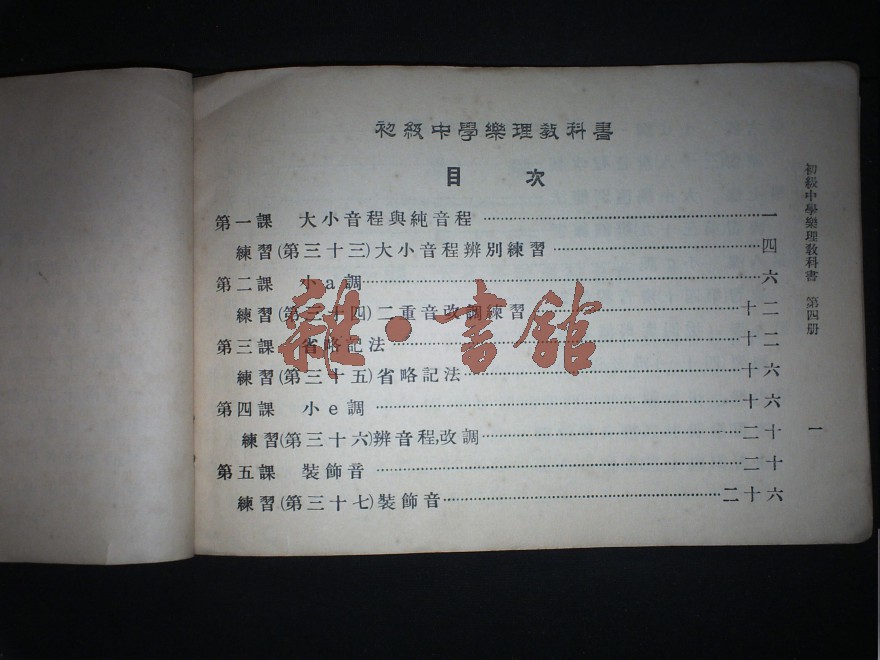 初級中學樂理教科書
目次
第一課 大小音程與純音程……一
練習(第三十三)大小音程辨別練習……四
第二課 小a調……六
練習(第三十四)二重音改調練習……十二
第三課 省略記法……十二
練習(第三十五)省略記法……十六
第四課 小e調……十六
練習(第三十六)辨音程,改調……二十
第五課 裝飾音……二十
練習(第三十七)裝飾音……二十六
初級中學樂理教科書 第四册
一
雜·書館